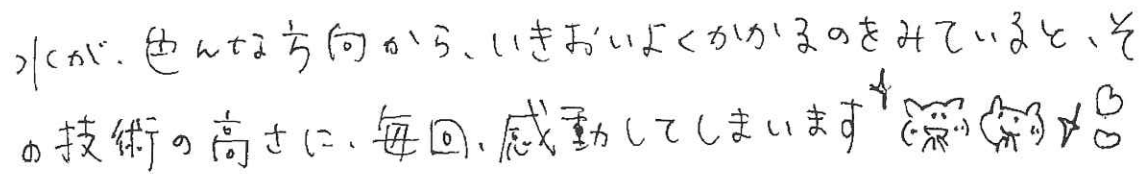 水が、色んな方向から、いきおいよくかかるのをみていると、そ
の技術の高さに、毎回、感動してしまいます